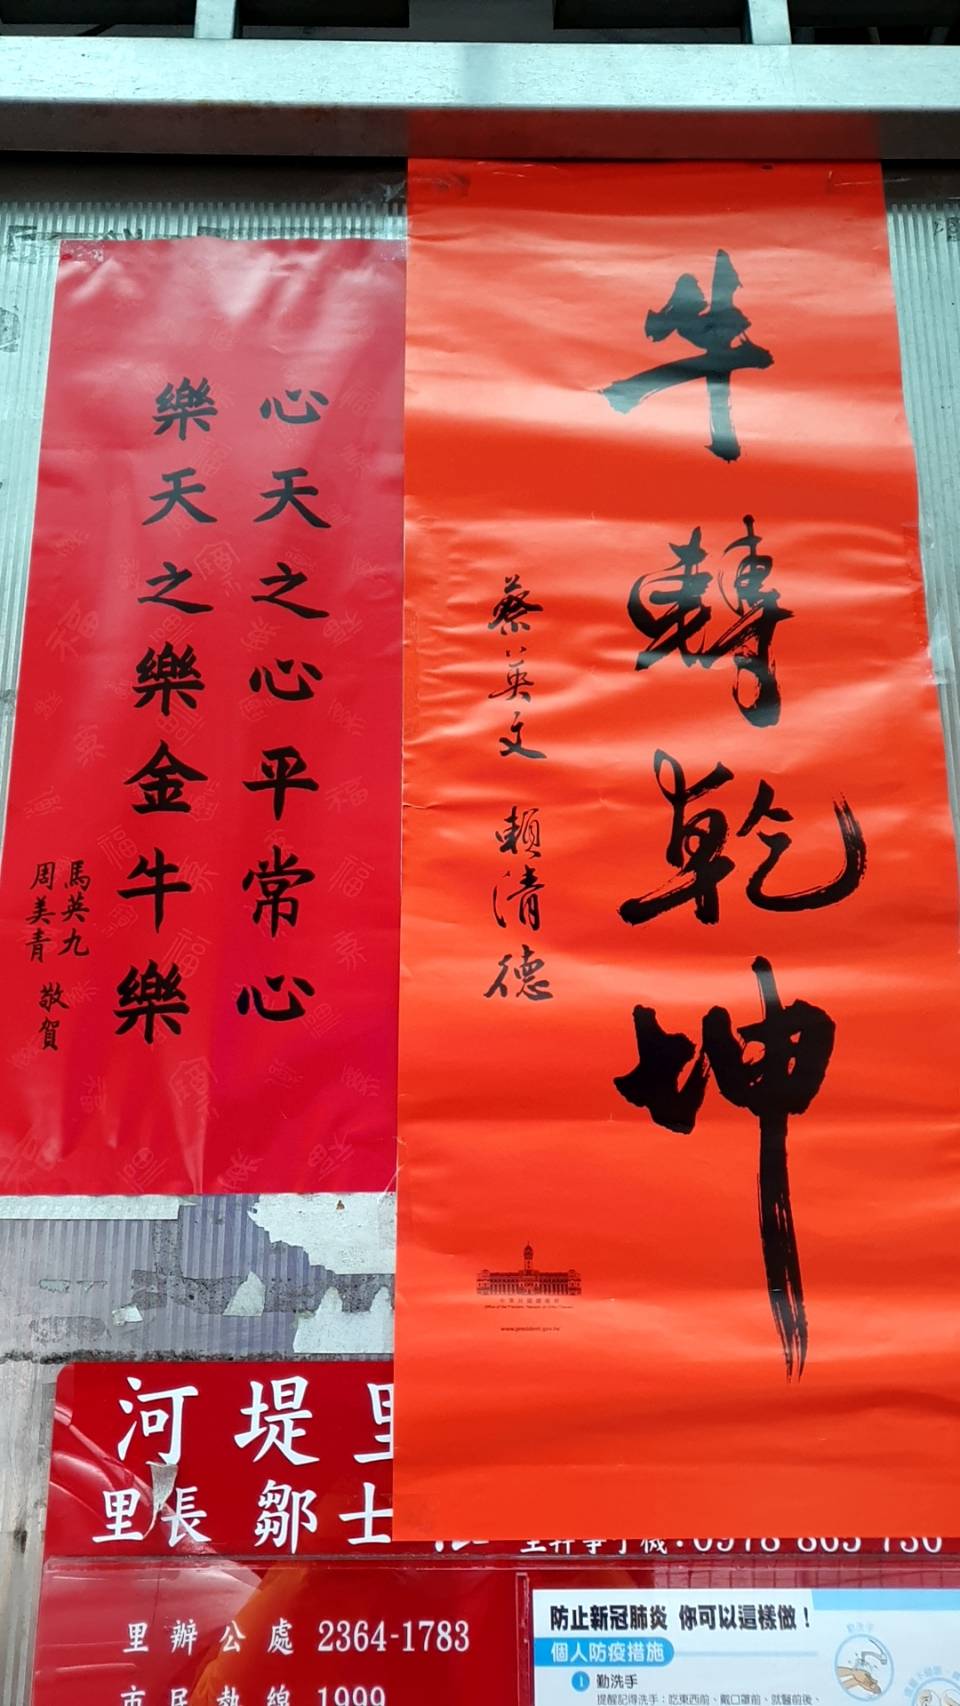 牛轉乾坤
蔡英文 賴清德
中華民國總統府
Office of the President, Republic of China (Taiwan)
www.president.gov.tw
心天之心平常心
樂天之樂金牛樂
馬英九
周美青
敬賀
河堤里
里長 鄒士
里幹事手機:0978 865 730
里辦公處 2364-1783
市民熱線 1999
防止新冠肺炎 你可以這樣做!
個人防疫措施
1 勤洗手
提醒記得洗手:吃東西前、戴口罩前、就醫前後、
勤洗手